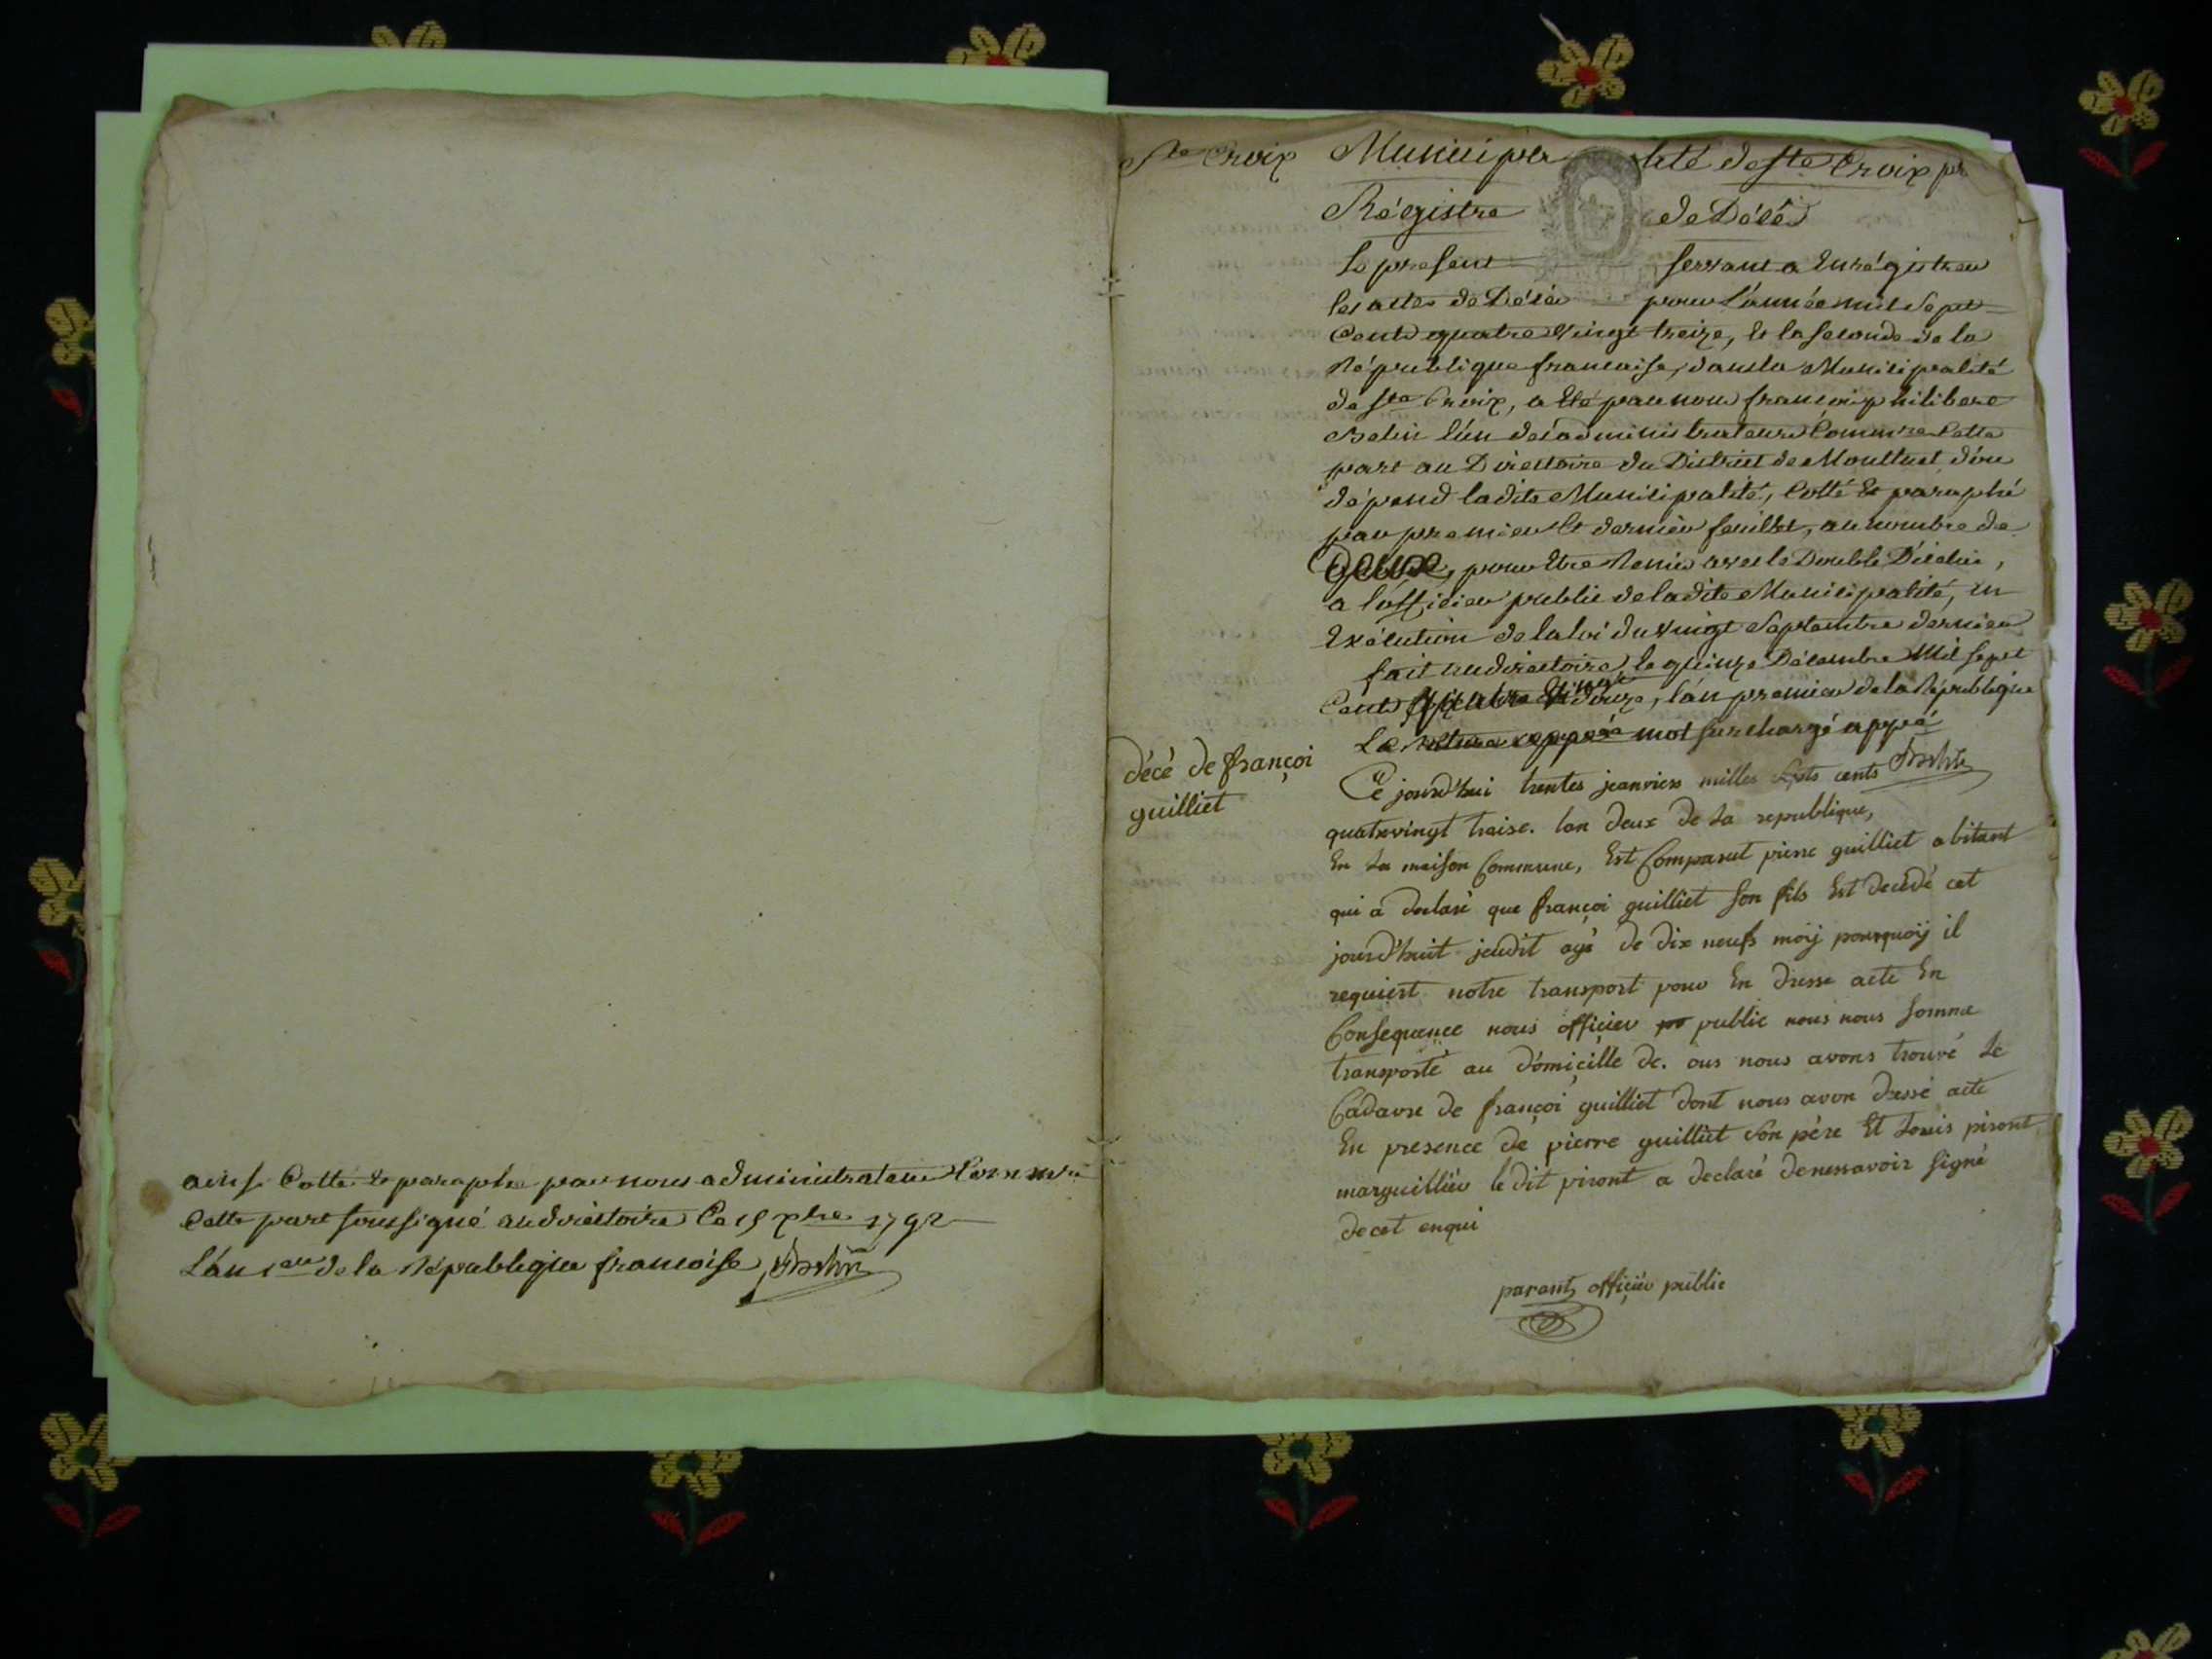 ainsi Cotté & paraphé par nous administrateur Comm.re
Cette part soussigné au directoire Ce 15 xbre 1792
L'an 1er de la République francoise
Ste Croix
Municipalité de Ste Croix pr
Régistre de Décès
Le present servant a Enrégistrer
les actes de Décès pour L'année mil Sept
Cents quatre Vingt treize, Et la Seconde de la
République francaise, dans la Municipalité
de Ste Croix, a Eté par nous françois philibert
Belin L'un des administrateurs Commre Cette
part au Directoire du District de Montluel d'ou
dépend ladite Municipalité, Cotté Et paraphé
par premier Et dernier feuillet, au nombre de
Deux, pour Etre Remis avec le Double D'icelui,
a L'officier public de ladite Municipalité, en
Exécution de la loi du Vingt Septembre dernier
fait au directoire le quinze Décembre Mil Sept
Cents quatre Vingt douze, L'an premier de la République
Le mot surchargé appvé
décé de françoi
guilliet
Ce jourd'hui trentes jeanviers milles septs cents
quatrevingt traise. lan deux de La republique,
En La maison Commune, Est Comparut pierre guilliet abitant
qui a declaré que françoi guilliet Son fils Est decédé cet
jourd'huit jeudit agé de dix neufs moij pourquoij il
requiert notre transport pour En dresse acte En
Consequence nous officier po public nous nous Somme
transporté au d'omicille de. ous nous avons trouvé Le
Cadavre de françoi guilliet dont nous avon dressé acte
En presence de pierre guilliet Son pére Et Louis piront
marguillier le dit piront a declaré denessavoir signé
decet enqui
parant officier public